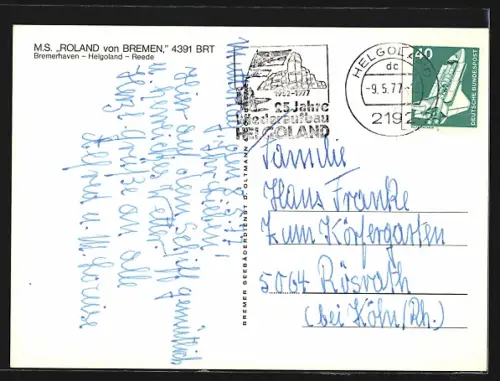 M.S. „ROLAND von BREMEN," 4391 BRT
Bremerhaven – Helgoland – Reede
1952-1977
25 Jahre
Wiederaufbau
HELGOLAND
HELGOLAND
dc
-9.5.77
2192
40
DEUTSCHE BUNDESPOST
BREMER SEEBÄDERDIENST D. OLTMANN
Familie
Hans Franke
Zum Körfergarten
5064 Rösrath
(bei Köln/Rh.)
Ihr Lieben!
auf dem Schiff gemütlich
Herzl. Grüße an alle